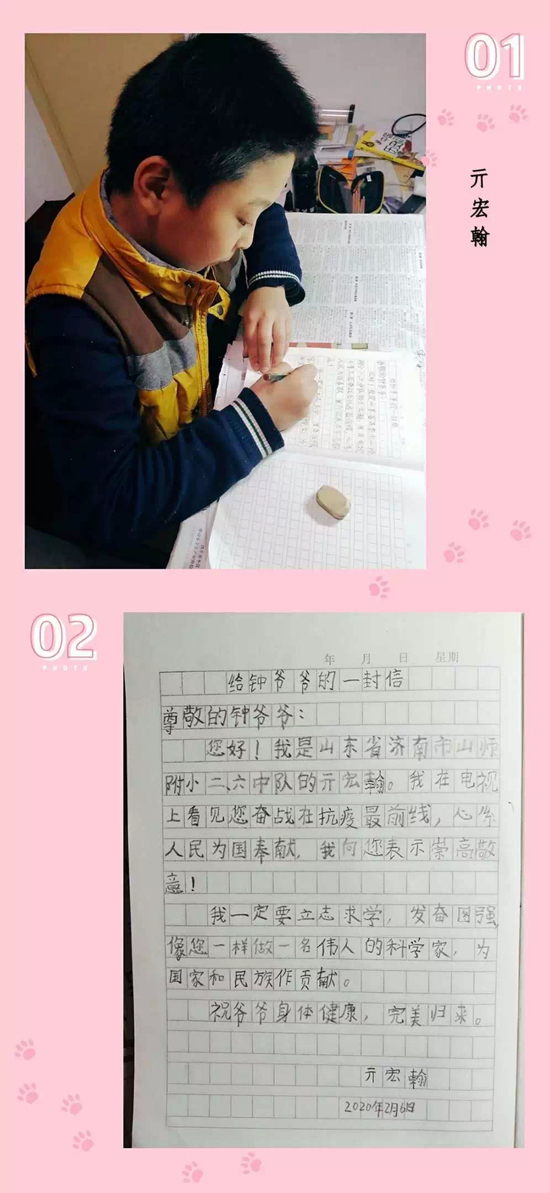 01
PHOTO
亓宏翰
02
PHOTO
年 月 日 星期
给钟爷爷的一封信
尊敬的钟爷爷：
您好！我是山东省济南市山师
附小二、六中队的亓宏翰。我在电视
上看见您奋战在抗疫最前线，心系
人民为国奉献，我向您表示崇高敬
意！
我一定要立志求学，发奋图强，
像您一样做一名伟人的科学家，为
国家和民族作贡献。
祝爷爷身体健康，完美归来。
亓宏翰
2020年2月6日